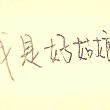 我是好姑娘